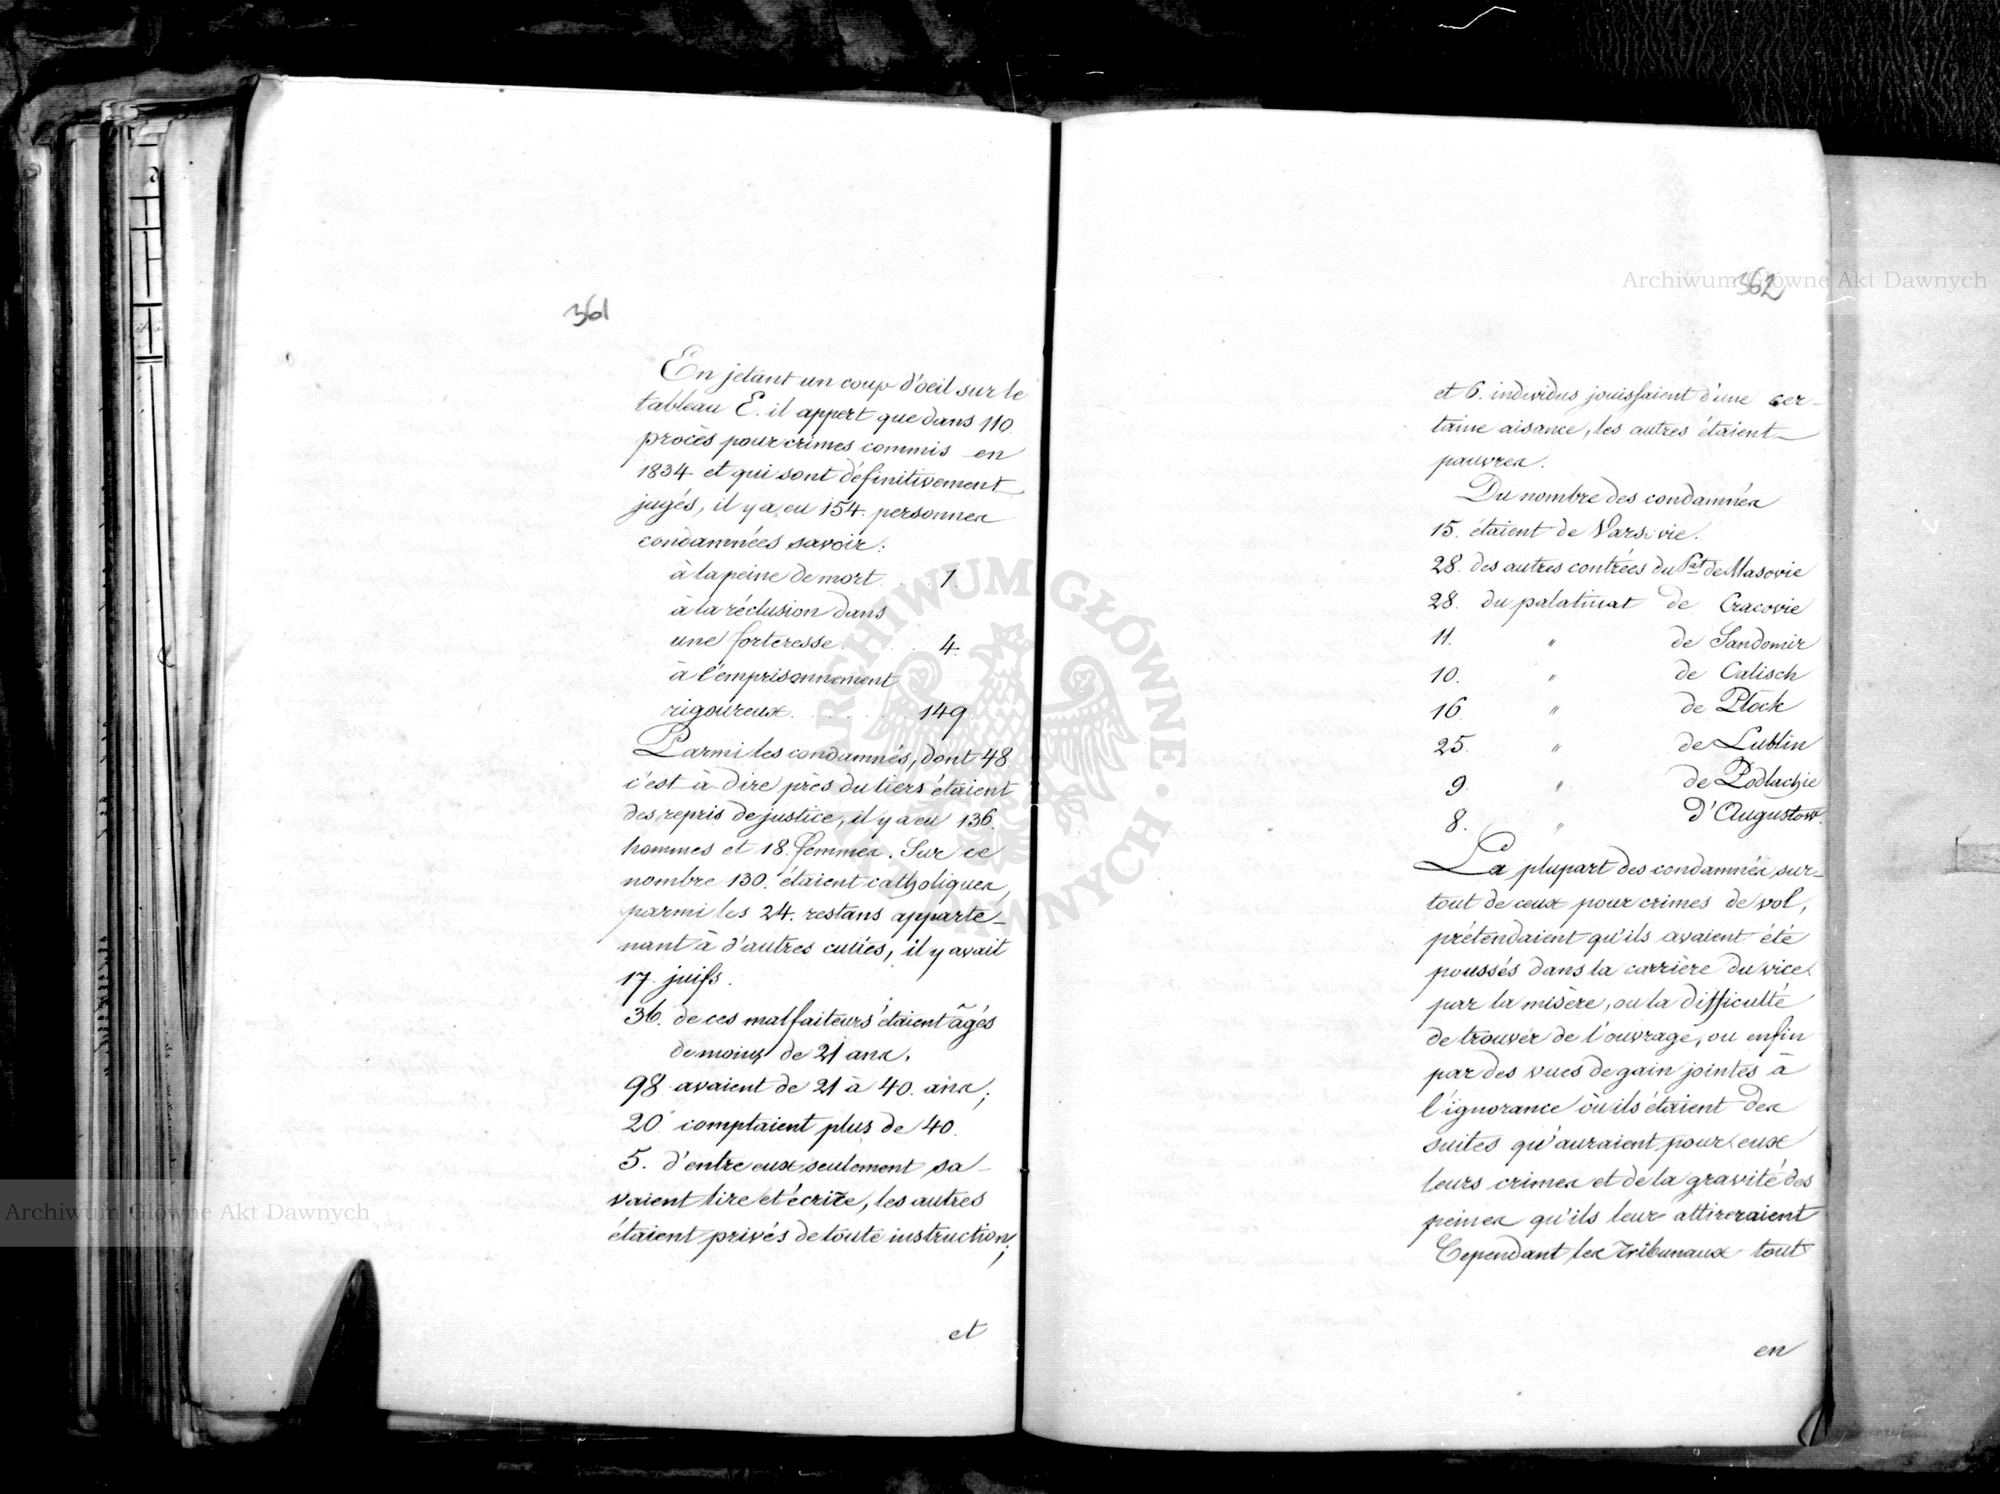 361
En jetant un coup d'oeil sur le
tableau E. il appert que dans 110.
procès pour crimes commis en
1834 et qui sont définitivement
jugés, il y a eu 154. personnes
condamnées savoir:
à la peine de mort . . 1.
à la réclusion dans
une forteresse . . . 4.
à l'emprisonnement
rigoureux . . . . . . 149.
Parmi les condamnés, dont 48.
c'est à dire près du tiers étaient
des repris de justice, il y a eu 136.
hommes et 18. femmes. Sur ce
nombre 130. étaient catholiques,
parmi les 24. restans apparte-
nant à d'autres cultes, il y avait
17. juifs.
36. de ces malfaiteurs étaient âgés
de moins de 21 ans.
98 avaient de 21 à 40. ans;
20 comptaient plus de 40.
5. d'entre eux seulement sa-
vaient lire et écrire, les autres
étaient privés de toute instruction;
et
362
et 6. individus jouissaient d'une cer-
taine aisance, les autres étaient
pauvres.
Du nombre des condamnés
15. étaient de Varsovie.
28. des autres contrées du Pat de Masovie
28. du palatinat de Cracovie
11. " de Sandomir
10. " de Calisch
16. " de Plock
25. " de Lublin
9. " de Podlachie
8. " d'Augustow.
La plupart des condamnés sur-
tout de ceux pour crimes de vol,
prétendaient qu'ils avaient été
poussés dans la carrière du vice
par la misère, ou la difficulté
de trouver de l'ouvrage, ou enfin
par des vues de gain jointes à
l'ignorance où ils étaient des
suites qu'auraient pour eux
leurs crimes et de la gravité des
peines qu'ils leur attireraient
Cependant les Tribunaux tout
en
Archiwum Główne Akt Dawnych
Archiwum Główne Akt Dawnych
ARCHIWUM GŁÓWNE AKT DAWNYCH